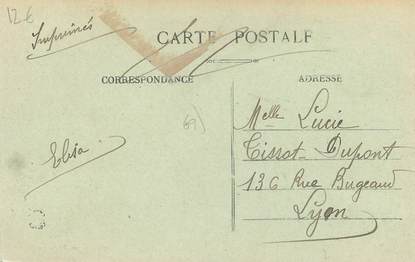 12€
Imprimés
CARTE POSTALE
CORRESPONDANCE
ADRESSE
69)
Elisa
Melle Lucie
Tissot-Dupont
136 Rue Bugeaud
Lyon